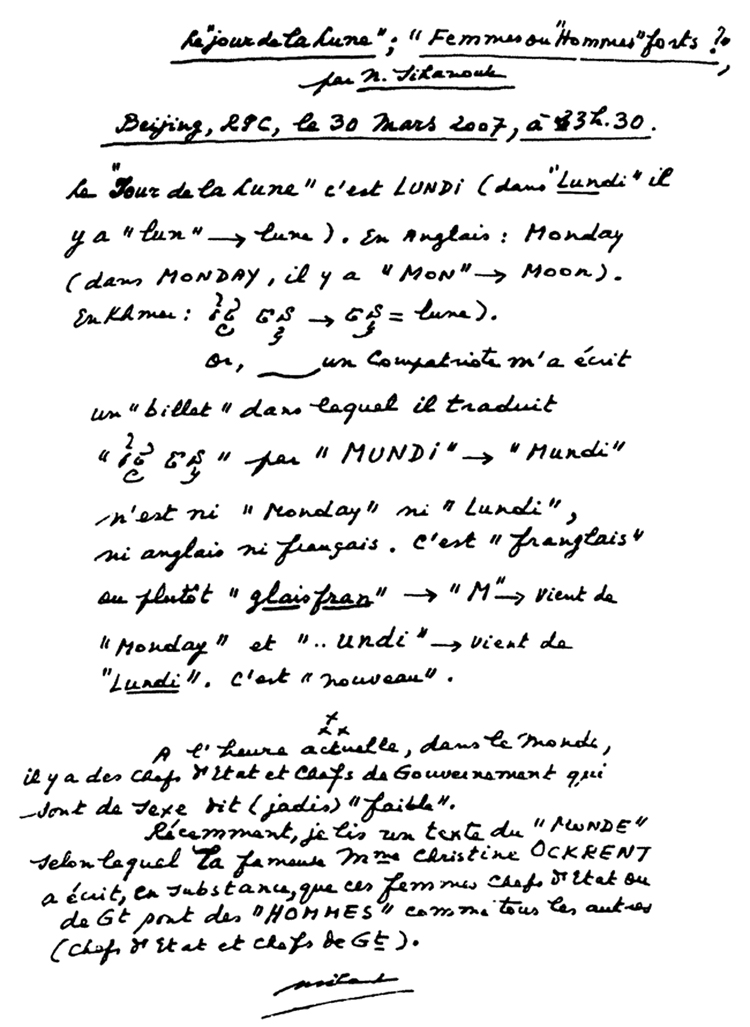 Le "jour de la Lune" ; "Femmes ou "Hommes" forts ?",
par N. Sihanouk
Beijing, RPC, le 30 Mars 2007, à 23h.30.
Le "Jour de la Lune" c'est LUNDI (dans "Lundi" il
y a "lun" → lune). En Anglais : Monday
(dans MONDAY, il y a "MON" → Moon).
En Khmer : ថ្ងៃ ចន្ទ → ចន្ទ = lune).
Or, un Compatriote m'a écrit
un "billet" dans lequel il traduit
"ថ្ងៃ ចន្ទ" par "MUNDI" → "Mundi"
n'est ni "Monday" ni "Lundi",
ni anglais ni français. C'est "franglais"
ou plutôt "glaisfran" → "M" → vient de
"Monday" et "..undi" → vient de
"Lundi". C'est "nouveau".
x
x x
A l'heure actuelle, dans le Monde,
il y a des Chefs d'Etat et Chefs de Gouvernement qui
sont de sexe dit (jadis) "faible".
Récemment, je lis un texte du "MONDE"
selon lequel la fameuse Mme Christine OCKRENT
a écrit, en substance, que ces femmes Chefs d'Etat ou
de Gt sont des "HOMMES" comme tous les autres
(Chefs d'Etat et Chefs de Gt).